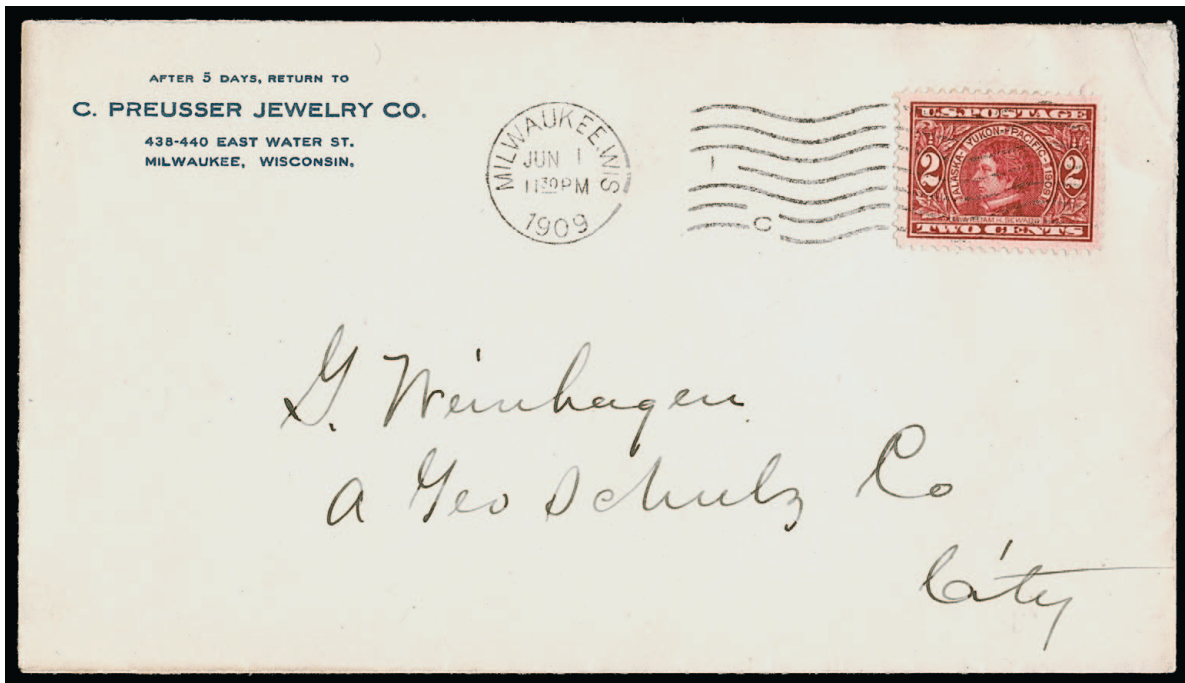 AFTER 5 DAYS, RETURN TO
C. PREUSSER JEWELRY CO.
438-440 EAST WATER ST.
MILWAUKEE, WISCONSIN.
MILWAUKEE WIS
JUN 1
11 30 PM
1909
1
C
U.S. POSTAGE
ALASKA-YUKON-PACIFIC-1909
2 2
WILLIAM H. SEWARD
TWO CENTS
G. Weinhagen
a Geo Schulz Co
City